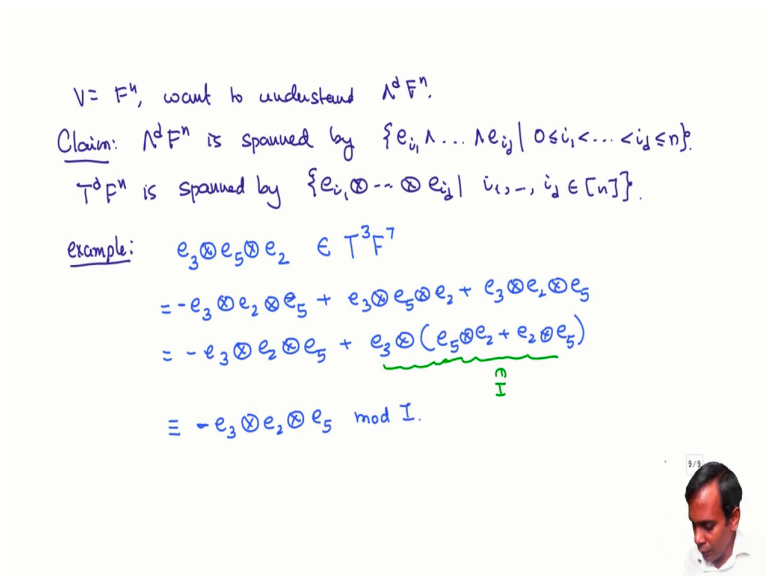 V = Fⁿ, want to understand Λᵈ Fⁿ.
Claim: Λᵈ Fⁿ is spanned by {e_{i₁} ∧ ... ∧ e_{i_d} | 0 ≤ i₁ < ... < i_d ≤ n}.
Tᵈ Fⁿ is spanned by {e_{i₁} ⊗ ... ⊗ e_{i_d} | i₁, ..., i_d ∈ [n]}.
example: e₃ ⊗ e₅ ⊗ e₂ ∈ T³ F⁷
= - e₃ ⊗ e₂ ⊗ e₅ + e₃ ⊗ e₅ ⊗ e₂ + e₃ ⊗ e₂ ⊗ e₅
= - e₃ ⊗ e₂ ⊗ e₅ + e₃ ⊗ (e₅ ⊗ e₂ + e₂ ⊗ e₅)
∈
I
≡ - e₃ ⊗ e₂ ⊗ e₅ mod I.
9/9